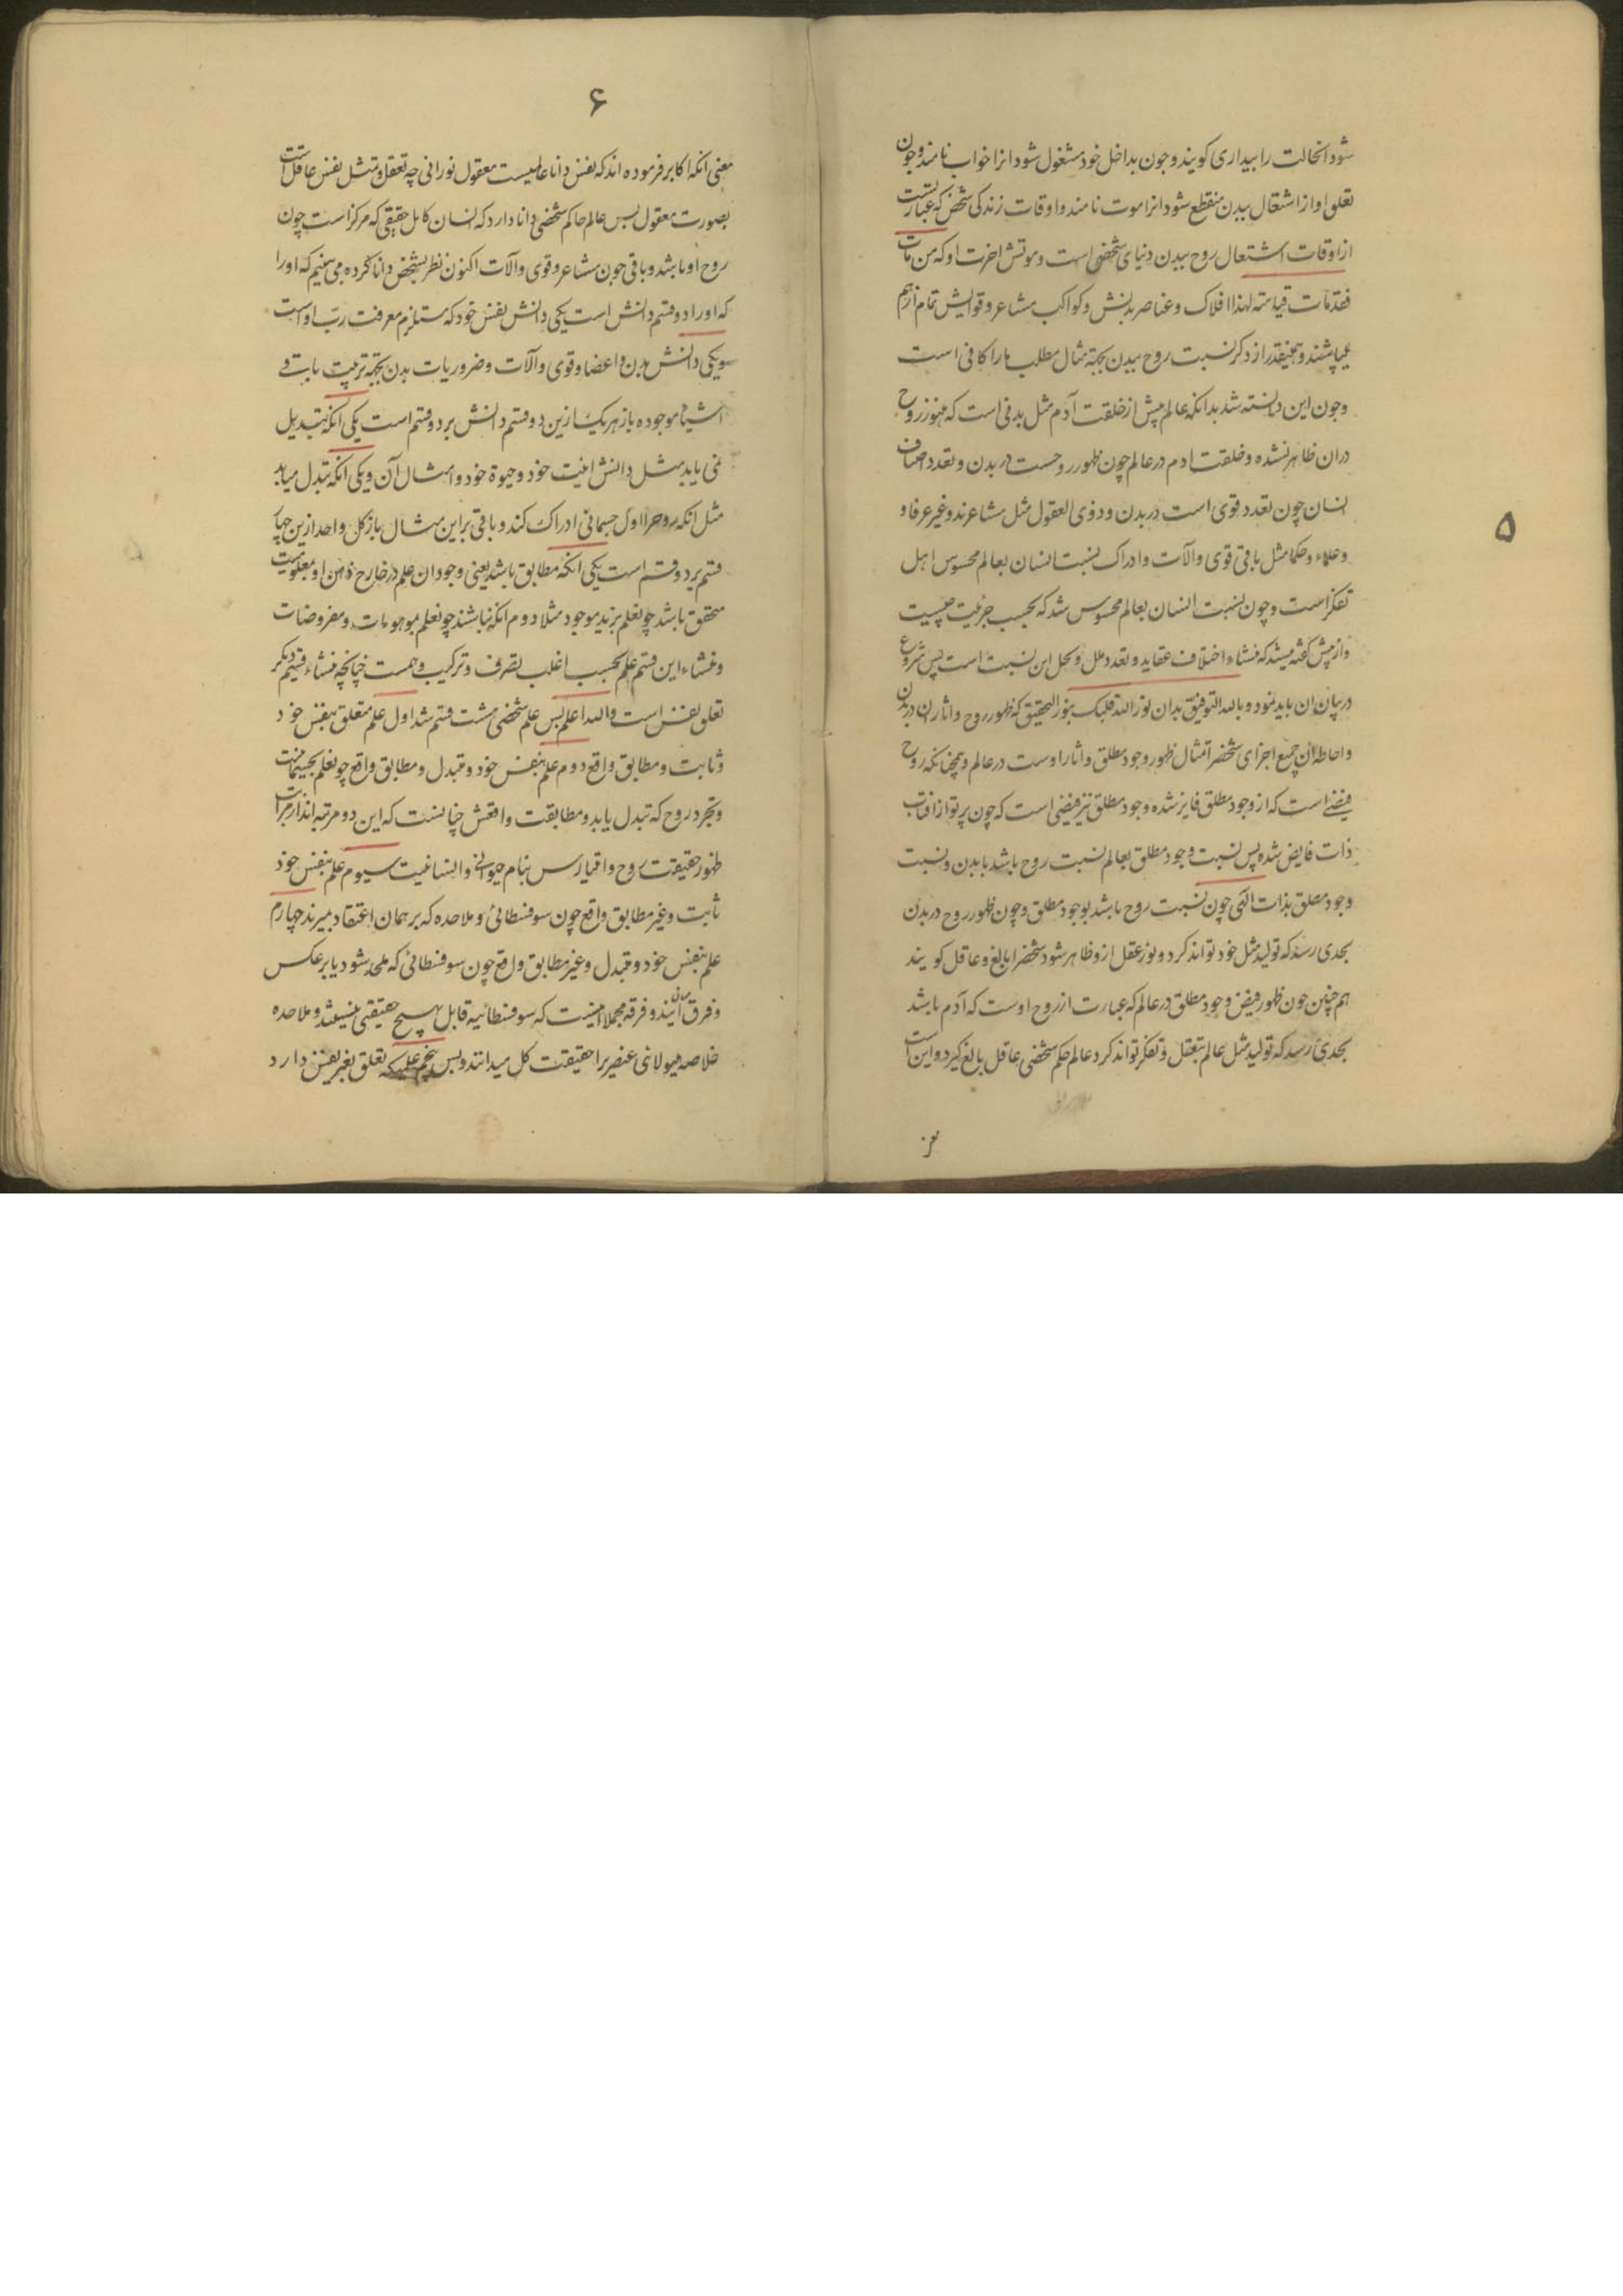 ۵
شود انحالت را بیداری کویند و چون بداخل خود مشغول شود انرا خواب نامند و چون
تعلق او از اشتغال ببدن منقطع شود انرا موت نامند و اوقات زندکی شخص که عبارتست
از اوقات اشتعال روح ببدن دنیای شخصی است و موتش اخرت او که من مات
فقدمات قیامته لهذا افلاک و عناصر بدنش و کواکب مشاعر و قوایش تمام از هم
میپاشند و همینقدر از ذکر نسبت روح ببدن بجهة مثال مطلب ما را کافی است
و چون این دانسته شد بدانکه عالم پیش از خلقت آدم مثل بدنی است که هنوز روح
دران ظاهر نشده و خلقت ادم در عالم چون ظهور روحست در بدن و تعدد اصناف
انسان چون تعدد قوی است در بدن و ذوی العقول مثل مشاعرند و غیر عرفا و
و علماء و حکما مثل باقی قوی و الات و ادراک نسبت انسان بعالم محسوس اهل
تفکر است و چون نسبت انسان بعالم محسوس شد که بحسب جزئیت چیست
و از پیش کفته میشد که منشاء اختلاف عقاید و تعدد ملل و نحل این نسبت است پس شروع
در بیان ان باید نمود و بالله التوفیق بدان نور الله قلبک بنور التحقیق که ظهور روح و اثار ان در بدن
و احاطه ان جمیع اجزای شخص را تمثال ظهور وجود مطلق و اثار اوست در عالم و همچنانکه روح
فیضی است که از وجود مطلق فایز شده وجود مطلق نیز فیضی است که چون پرتو از افتاب
ذات فایض شده پس نسبت وجود مطلق بعالم نسبت روح باشد با بدن و نسبت
وجود مطلق بذات الهی چون نسبت روح باشد بوجود مطلق و چون ظهور روح در بدن
بحدی رسد که تولید مثل خود تواند کرد و نور عقل ازو ظاهر شود شخص را بالغ و عاقل کویند
هم چنین چون ظهور فیض وجود مطلق در عالم که عبارت از روح اوست که آدم باشد
بحدی رسد که تولید مثل عالم بتعقل و تفکر تواند کرد عالم حکم شخصی عاقل بالغ کیرد و این است
۶
معنی انکه اکابر فرموده اند که نفس دانا عالمیست معقول نورانی چه تعقل و تمثل نفس عاقل است
بصورت معقول پس عالم حاکم شخصی دانا دارد که انسان کامل حقیقی که مرکز است چون
روح او باشد و باقی چون مشاعر و قوی و آلات اکنون نظر بشخص دانا کرده می بینیم که او را
که او را دو قسم دانش است یکی دانش نفس خود که مستلزم معرفت رب اوست
و یکی دانش بدن و اعضا و قوی و آلات و ضروریات بدن بجهة تربیت
اشیاء موجوده باز هر یک ازین دو قسم دانش بر دو قسم است یکی انکه تبدیل
نمی یابد مثل دانش انیت خود و حیوة خود و امثال آن و یکی انکه تبدل میابد
مثل انکه روح را اول جسمانی ادراک کند و باقی بر این مثال باز کل واحد ازین چهار
قسم بر دو قسم است یکی انکه مطابق باشد یعنی وجود ان علم در خارج ذهن او بمعلومیت
متحقق باشد چو تعلم بزید موجود مثلا دوم انکه نباشند چو تعلم بموهومات و مفروضات
و منشاء این قسم علم بحسب اغلب تصرف و ترکیب وهمست چنانچه منشاء قسم دیکر
تعلق نفس است والله اعلم پس علم شخصی هشت قسم شد اول علم متعلق بنفس خود
و ثابت و مطابق واقع دوم علم بنفس خود و متبدل و مطابق واقع چو تعلم بجسمانیت
و تجرد روح که تبدل یابد و مطابقت واقعش چنانست که این دو مرتبه اند از مراتب
ظهور حقیقت روح بنام حیوانی و انسانیت سیوم علم بنفس خود
ثابت و غیر مطابق واقع چون سوفسطائی و ملاحده که بر همان اعتقاد میرند چهارم
علم بنفس خود و متبدل و غیر مطابق واقع چون سوفسطائی که ملحد شود یا برعکس
و فرق میان ایندو فرقه مجملا اینست که سوفسطائیه قابل بهیچ حقیقتی نیستند و ملاحده
خلاصه هیولانی عنصری را حقیقت کل میدانند و بس پنجم علمیکه تعلق بغیر نفس دارد